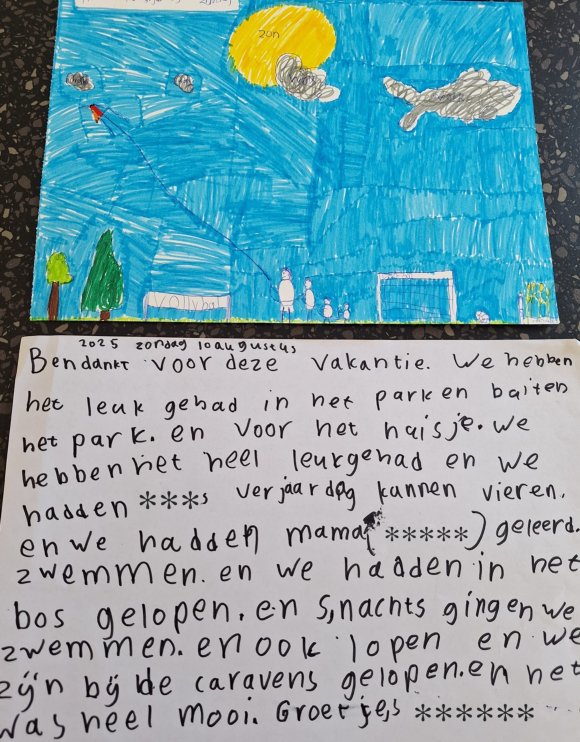 zon
Vollybal
2025 zondag 10 augustus
Bendankt voor deze vakantie. We hebben
het leuk gehad in het park en baiten
het park. en voor het haisje. We
hebben het heel leuk gehad en we
hadden ***s verjaardag kannen vieren.
en we hadden mama( *****) geleerd.
zwemmen. en we hadden in het
bos gelopen. en s,nachts gingen we
zwemmen. en ook lopen en we
zijn bij de caravens gelopen. en het
was heel mooi. Groetjes ******